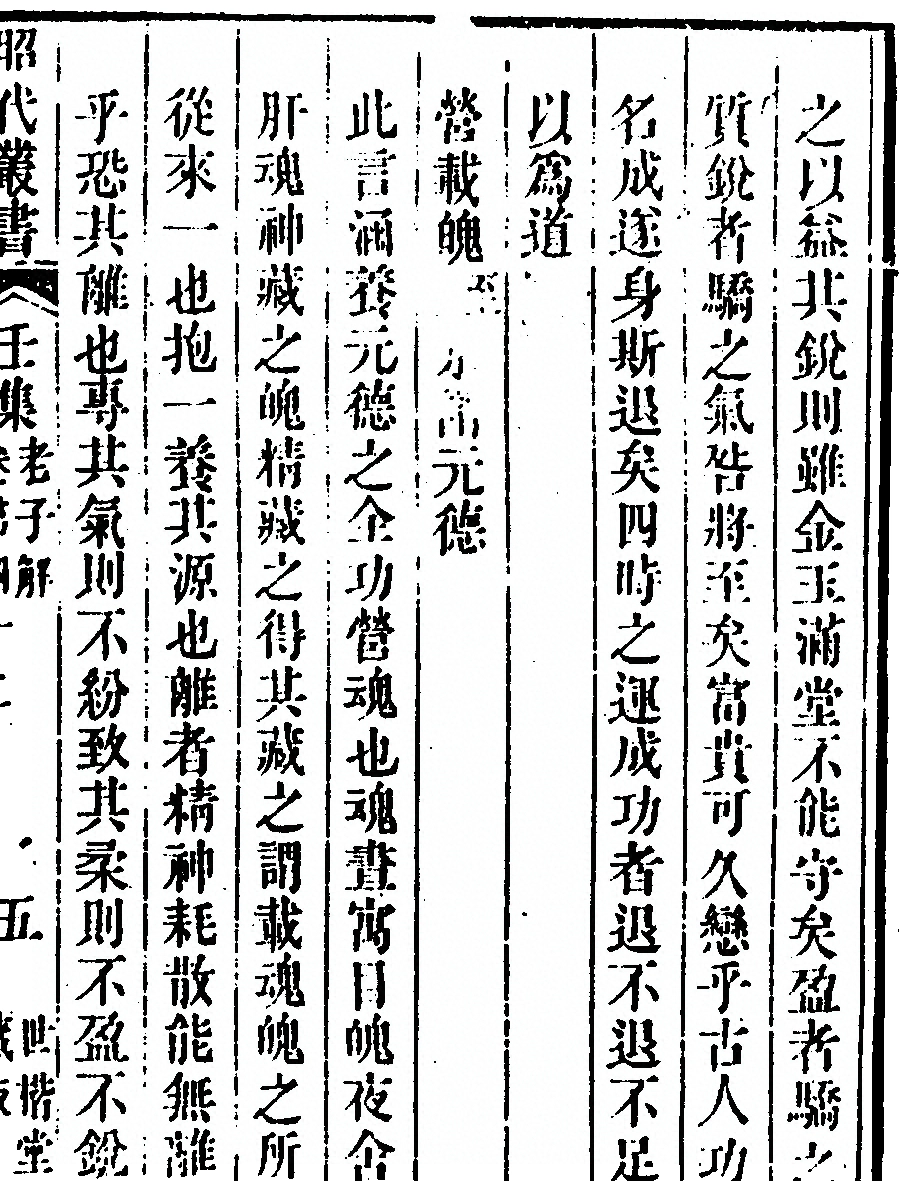 之以益其銳則雖金玉滿堂不能守矣盈者驕之
質銳者驕之氣咎將至矣富貴可久戀乎古人功
名成遂身斯退矣四時之運成功者退不退不足
以爲道
營載魄至 元德
此言涵養元德之全功營魂也魂晝寓目魄夜舍
肝魂神藏之魄精藏之得其藏之謂載魂魄之所
從來一也抱一養其源也離者精神耗散能無離
乎恐其離也專其氣則不紛致其柔則不盈不銳
昭代叢書 壬集 老子解 五 世楷堂